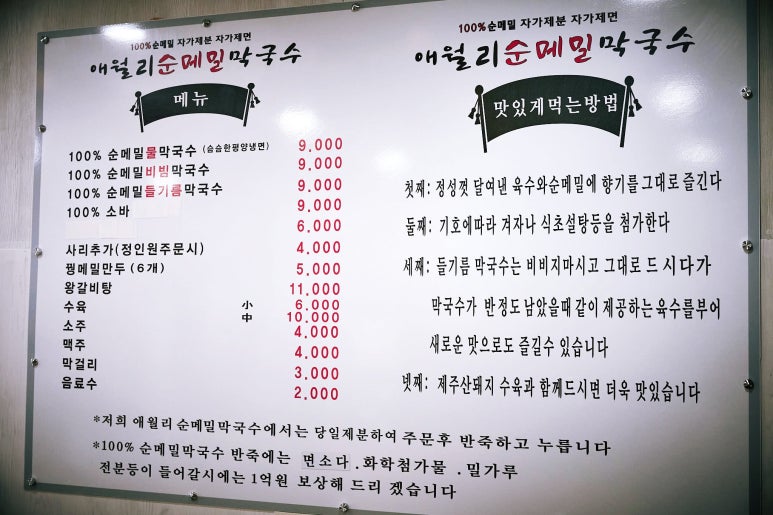 100%순메밀 자가제분 자가제면
애월리순메밀막국수
메뉴
100% 순메밀물막국수 (슴슴한평양냉면) 9,000
100% 순메밀비빔막국수 9,000
100% 순메밀들기름막국수 9,000
100% 소바 9,000
6,000
사리추가(정인원주문시) 4,000
꿩메밀만두 (6개) 5,000
왕갈비탕 11,000
수육 小 6,000
中 10,000
소주 4,000
맥주 4,000
막걸리 3,000
음료수 2,000
100%순메밀 자가제분 자가제면
애월리순메밀막국수
맛있게먹는방법
첫째: 정성껏 달여낸 육수와순메밀에 향기를그대로 즐긴다
둘째: 기호에따라 겨자나 식초설탕등을 첨가한다
세째: 들기름 막국수는 비비지마시고 그대로 드 시다가
막국수가 반정도 남았을때 같이 제공하는 육수를부어
새로운 맛으로도 즐길수 있습니다
넷째: 제주산돼지 수육과 함께드시면 더욱 맛있습니다
*저희 애월리순메밀막국수에서는 당일제분하여 주문후 반죽하고 누릅니다
*100% 순메밀막국수 반죽에는 면소다 .화학첨가물 .밀가루
전분등이 들어갈시에는 1억원 보상해 드리 겠습니다